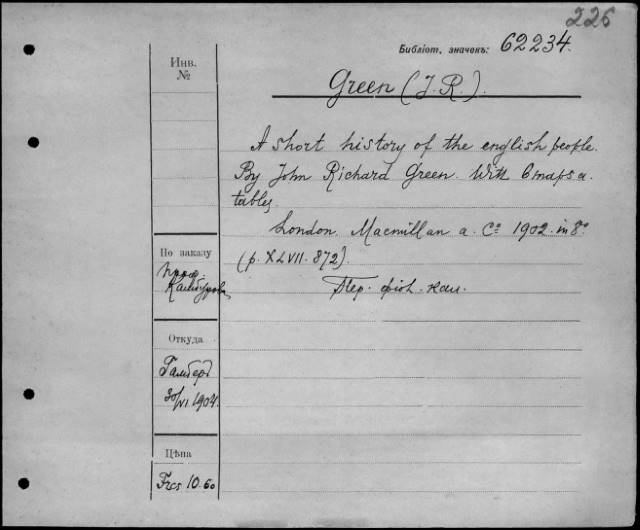 226
Библіот. значекъ: 62234.
Инв. №
Green (J. R.).
A short history of the english people.
By John Richard Green. With 6 maps a.
tables.
London. Macmillan a. Cº 1902. in 8º
(p. XLVII. 872).
Пер. фіол. кал.
По заказу
проф.
Откуда
30/VI 1904.
Цѣна
Frcs 10.60